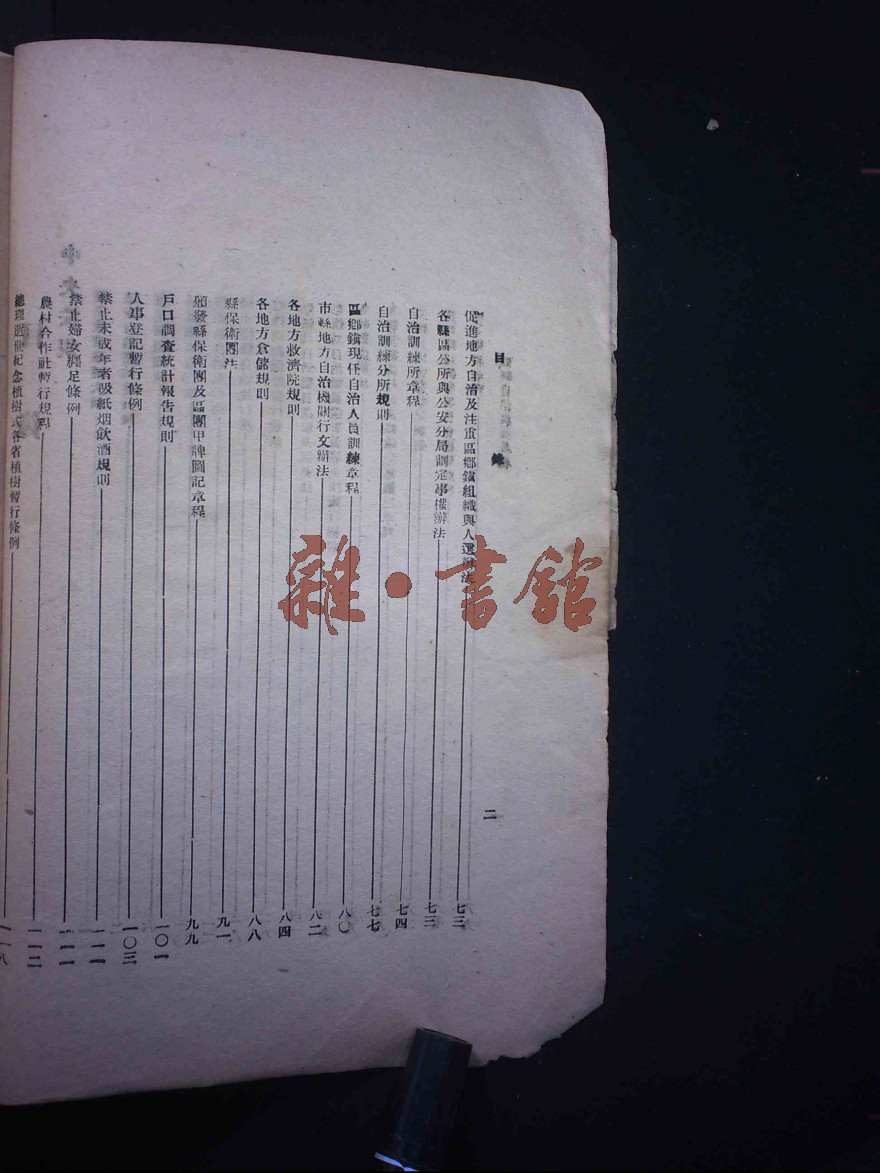 目錄
二
促進地方自治及注重區鄉鎮組織與人選辦法 七三
各縣區公所與公安分局劃定事權辦法 七三
自治訓練所章程 七四
自治訓練分所規則 七七
區鄉鎮現任自治人員訓練章程 八〇
市縣地方自治機關行文辦法 八二
各地方救濟院規則 八四
各地方倉儲規則 八八
縣保衛團法 九一
頒發縣保衛團及區團甲牌圖記章程 九九
戶口調查統計報告規則 一〇一
人事登記暫行條例 一〇三
禁止未成年者吸紙烟飲酒規則 一一一
禁止婦女纏足條例 一一一
農村合作社暫行規程 一一二
總理逝世紀念植樹式各省植樹暫行條例 一一八
雜·書館